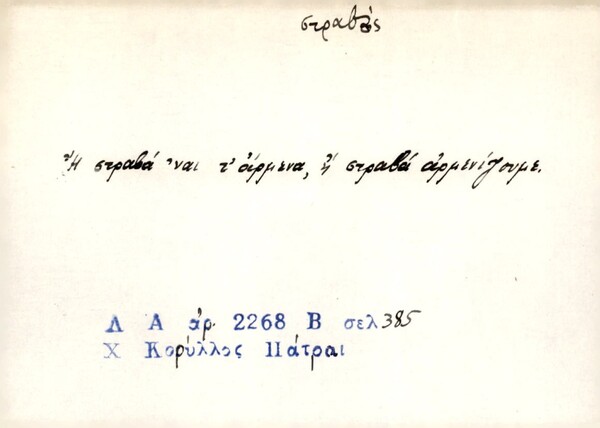 στραβός
Ἤ στραβά 'ναι τ' ἄρμενα, ἤ στραβά ἀρμενίζουμε.
Λ Α ἀρ. 2268 Β σελ 385
Χ Κορύλλος Πάτραι